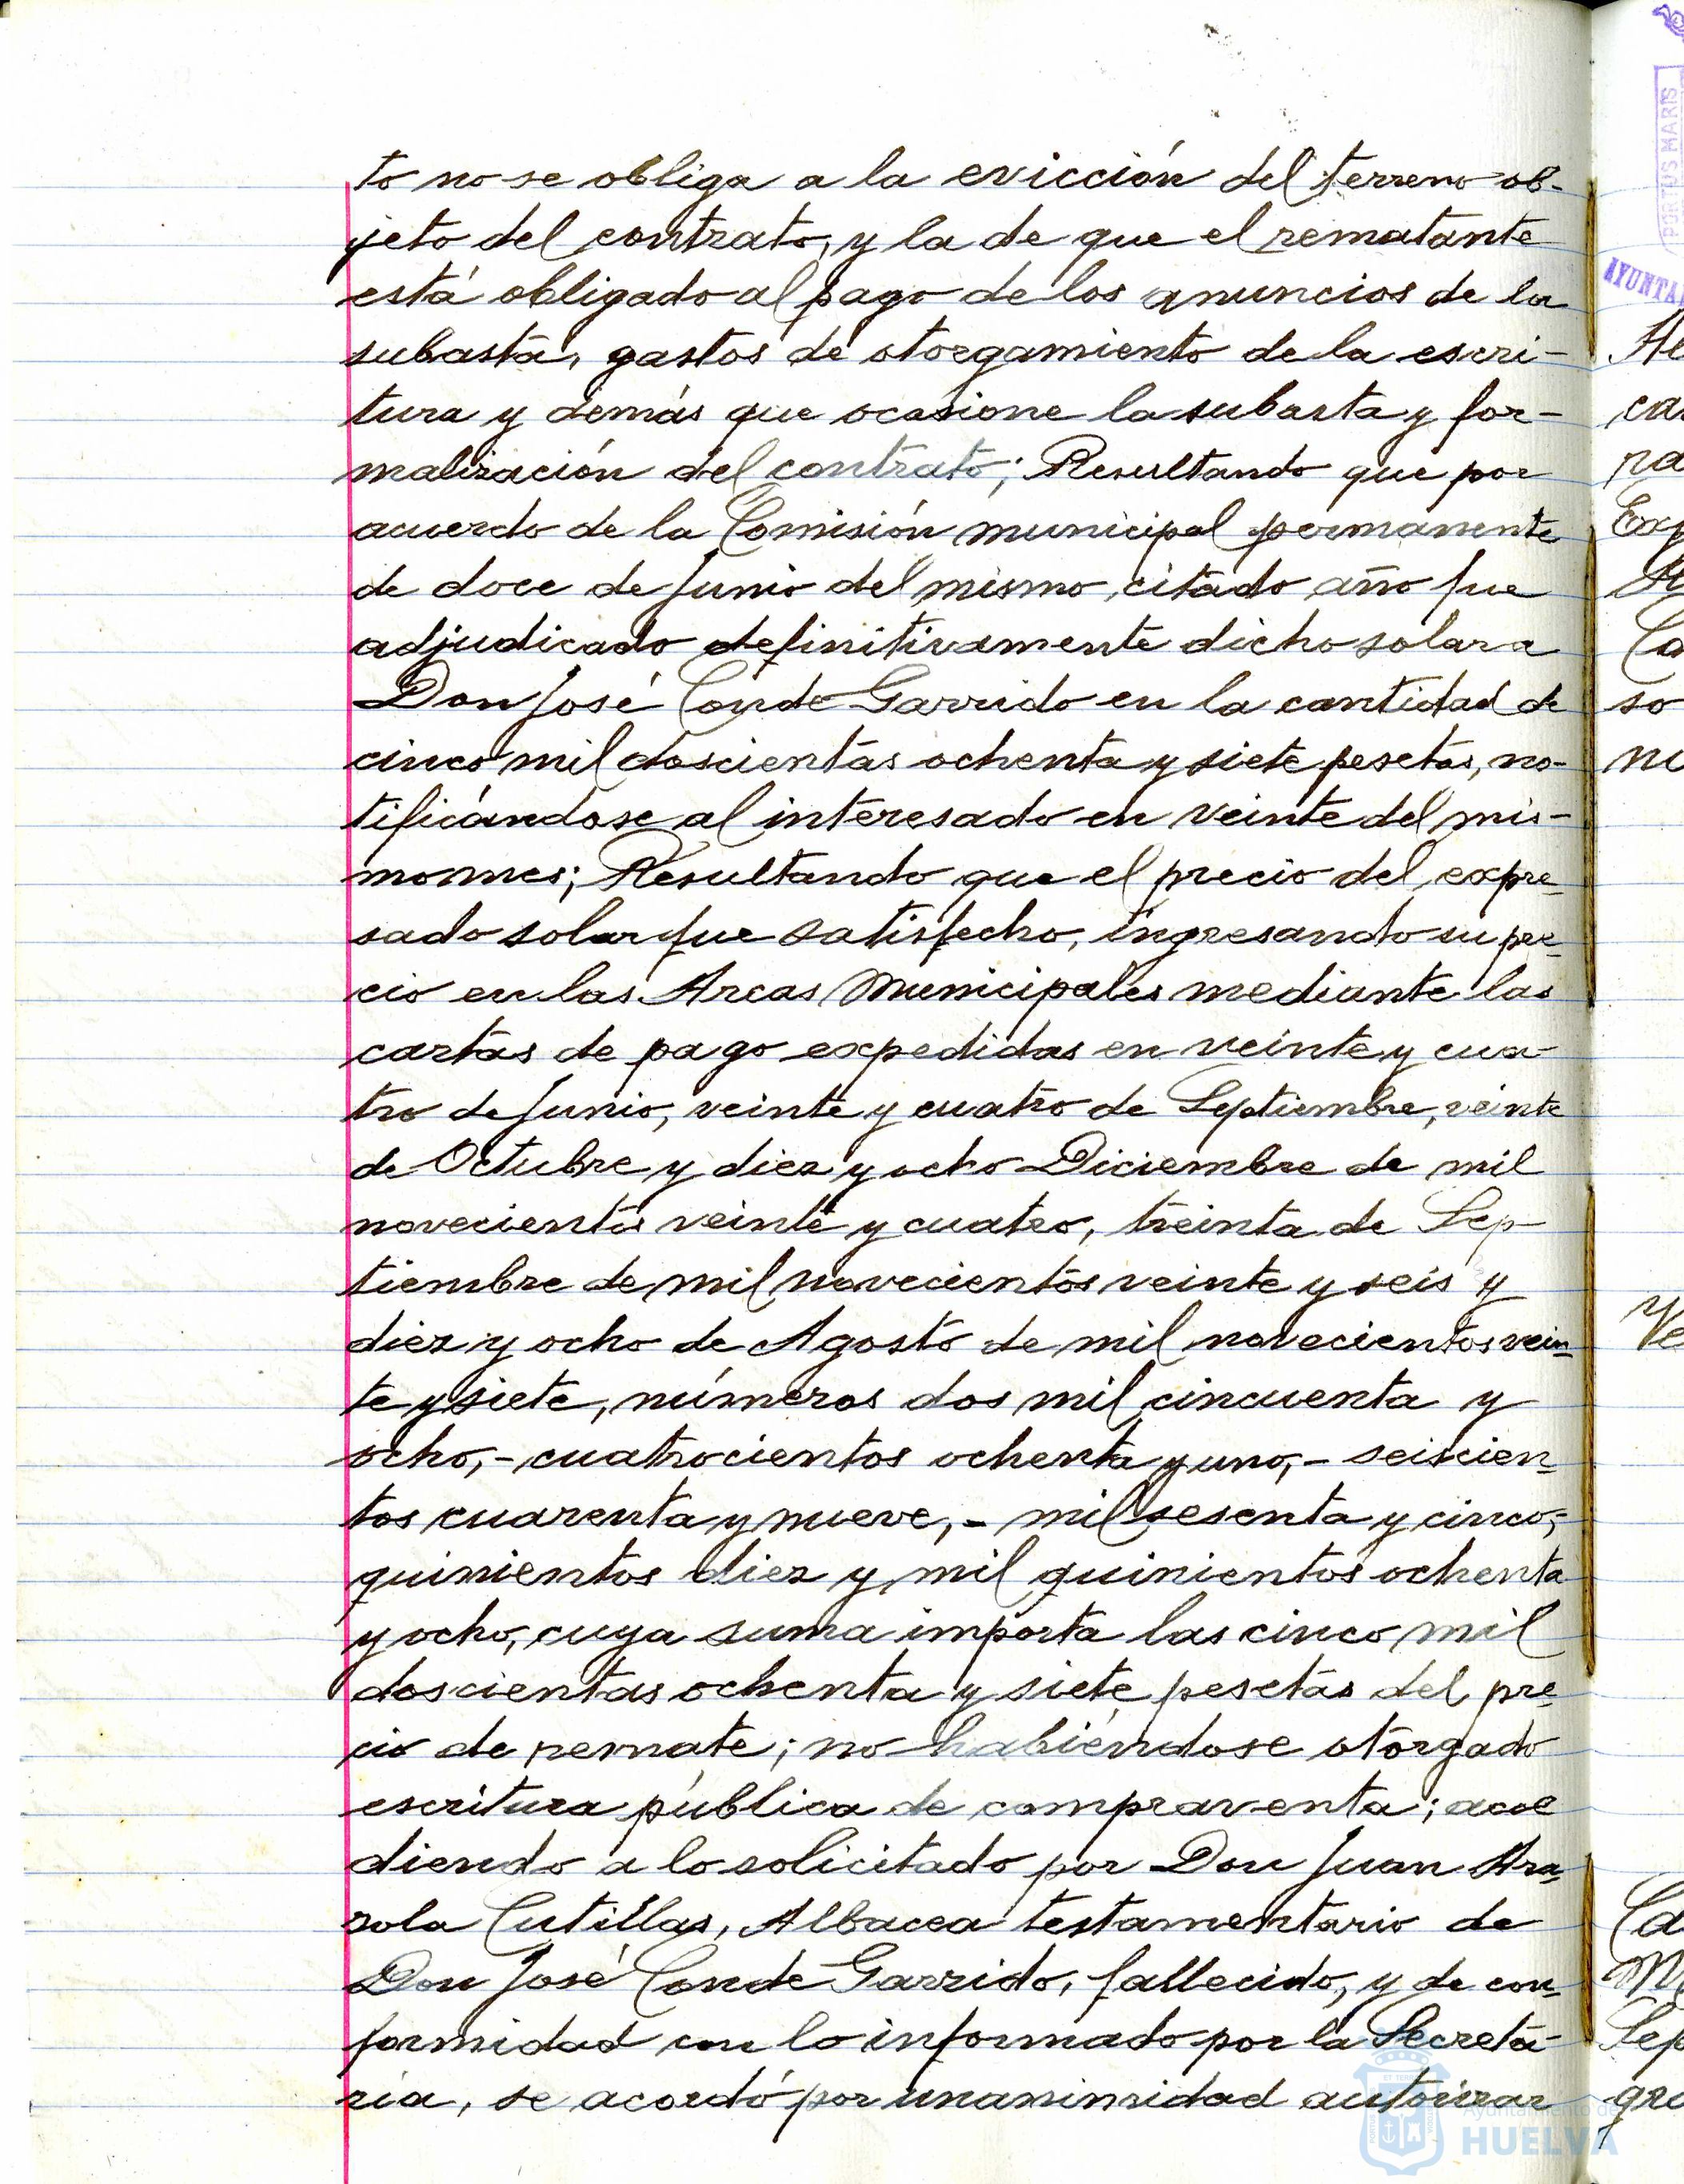 to no se obliga a la evicción del terreno ob-
jeto del contrato, y la de que el rematante
está obligado al pago de los anuncios de la
subasta, gastos de otorgamiento de la escri-
tura y demás que ocasione la subasta y for-
malización del contrato; Resultando que por
acuerdo de la Comisión municipal permanente
de doce de Junio del mismo citado año fue
adjudicado definitivamente dicho solar a
Don José Conde Garrido en la cantidad de
cinco mil doscientas ochenta y siete pesetas, no-
tificándose al interesado en veinte del mis-
mo mes; Resultando que el precio del expre-
sado solar fue satisfecho, ingresando su pre-
cio en las Arcas Municipales mediante las
cartas de pago expedidas en veinte y cua-
tro de Junio, veinte y cuatro de Septiembre, veinte
de Octubre y diez y ocho Diciembre de mil
novecientos veinte y cuatro, treinta de Sep-
tiembre de mil novecientos veinte y seis y
diez y ocho de Agosto de mil novecientos vein-
te y siete, números dos mil cincuenta y
ocho,- cuatrocientos ochenta y uno,- seiscien-
tos cuarenta y nueve,- mil sesenta y cinco,-
quinientos diez y mil quinientos ochenta
y ocho, cuya suma importa las cinco mil
doscientas ochenta y siete pesetas del pre-
cio de remate; no habiéndose otorgado
escritura pública de compraventa; acce
diendo a lo solicitado por Don Juan Ara-
zola Cutillas, Albacea testamentario de
Don José Conde Garrido, fallecido, y de con-
formidad con lo informado por la Secreta-
ria, se acordó por unanimidad autorizar
PORTUS MARIS
AYUNTA
Ayuntamiento de
HUELVA